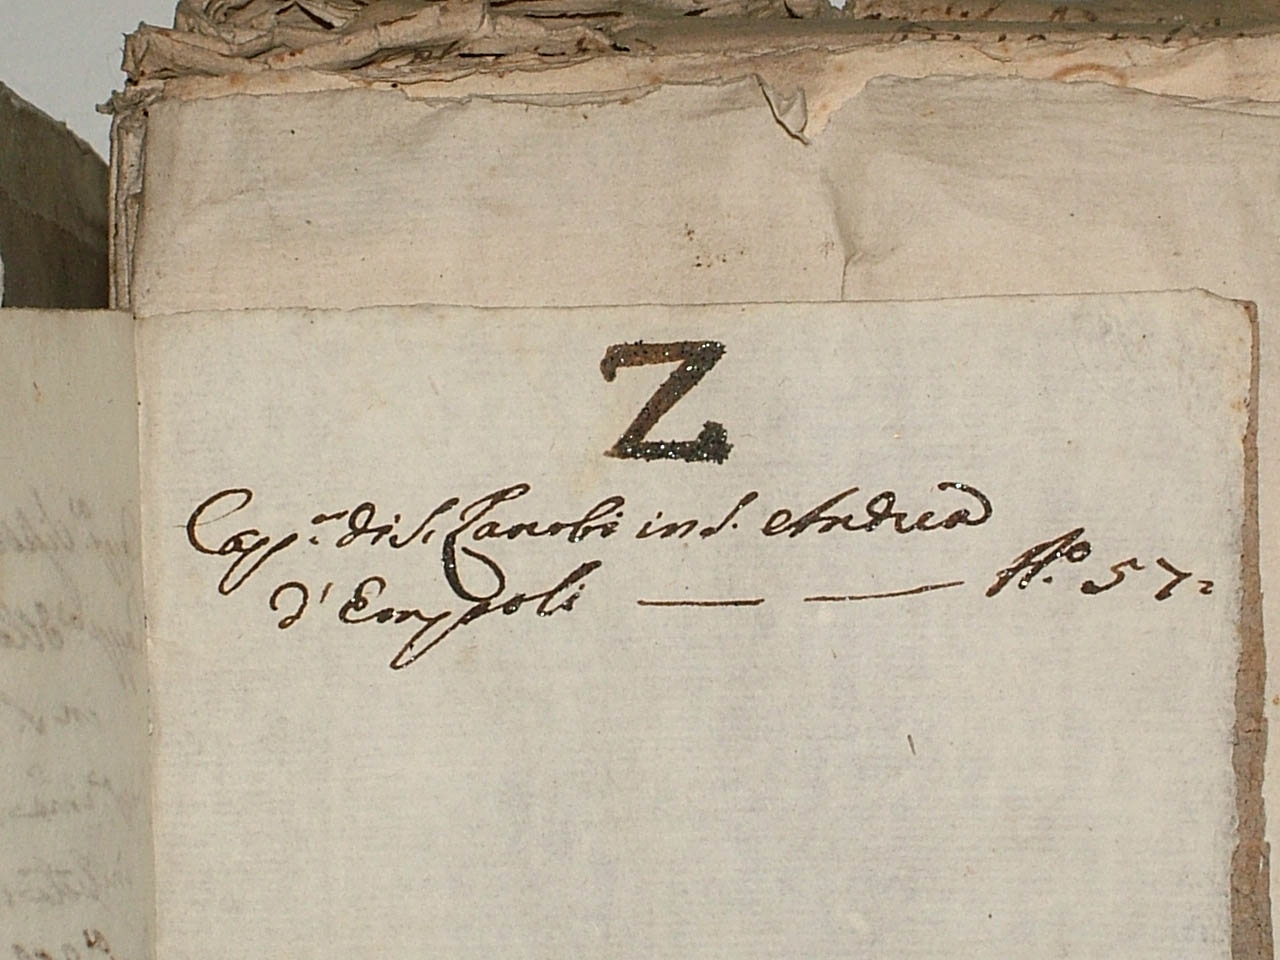 Z
Capp.ⁿᵃ di S. Zanobi in S. Andrea
d' Empoli — — Nº. 57=